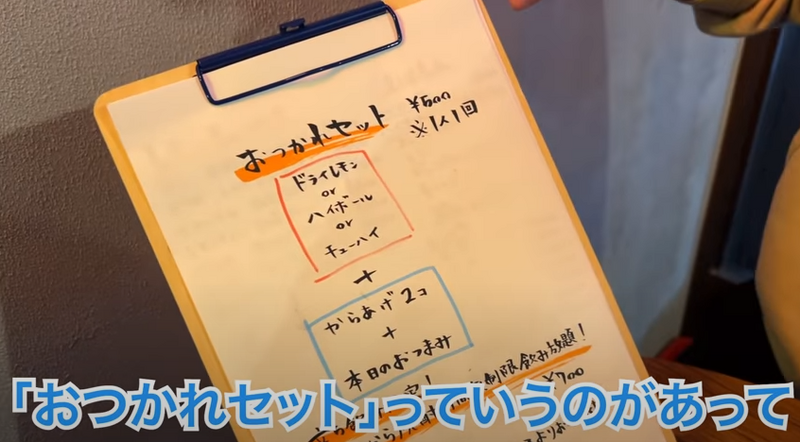 おつかれセット ¥500
※1人1回
ドライレモン
or
ハイボール
or
チューハイ
+
からあげ2コ
+
本日のおつまみ
制限飲み放題!
¥700
「おつかれセット」っていうのがあって